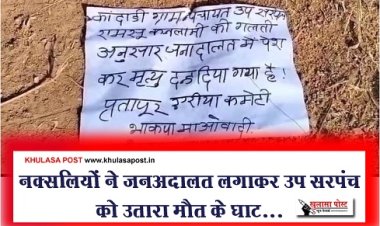 कोंदाडी ग्राम पंचायत उप सरपंच
रामसू कचलामी को गलती
अनुसार जनअदालत में पेश
कर मृत्यु दन्ड दिया गया है!
परतापूर एरीया कमेटी
भाकपा माओवादी
KHULASA POST www.khulasapost.in
नक्सलियों ने जनअदालत लगाकर उप सरपंच
को उतारा मौत के घाट...
खुलासा पोस्ट